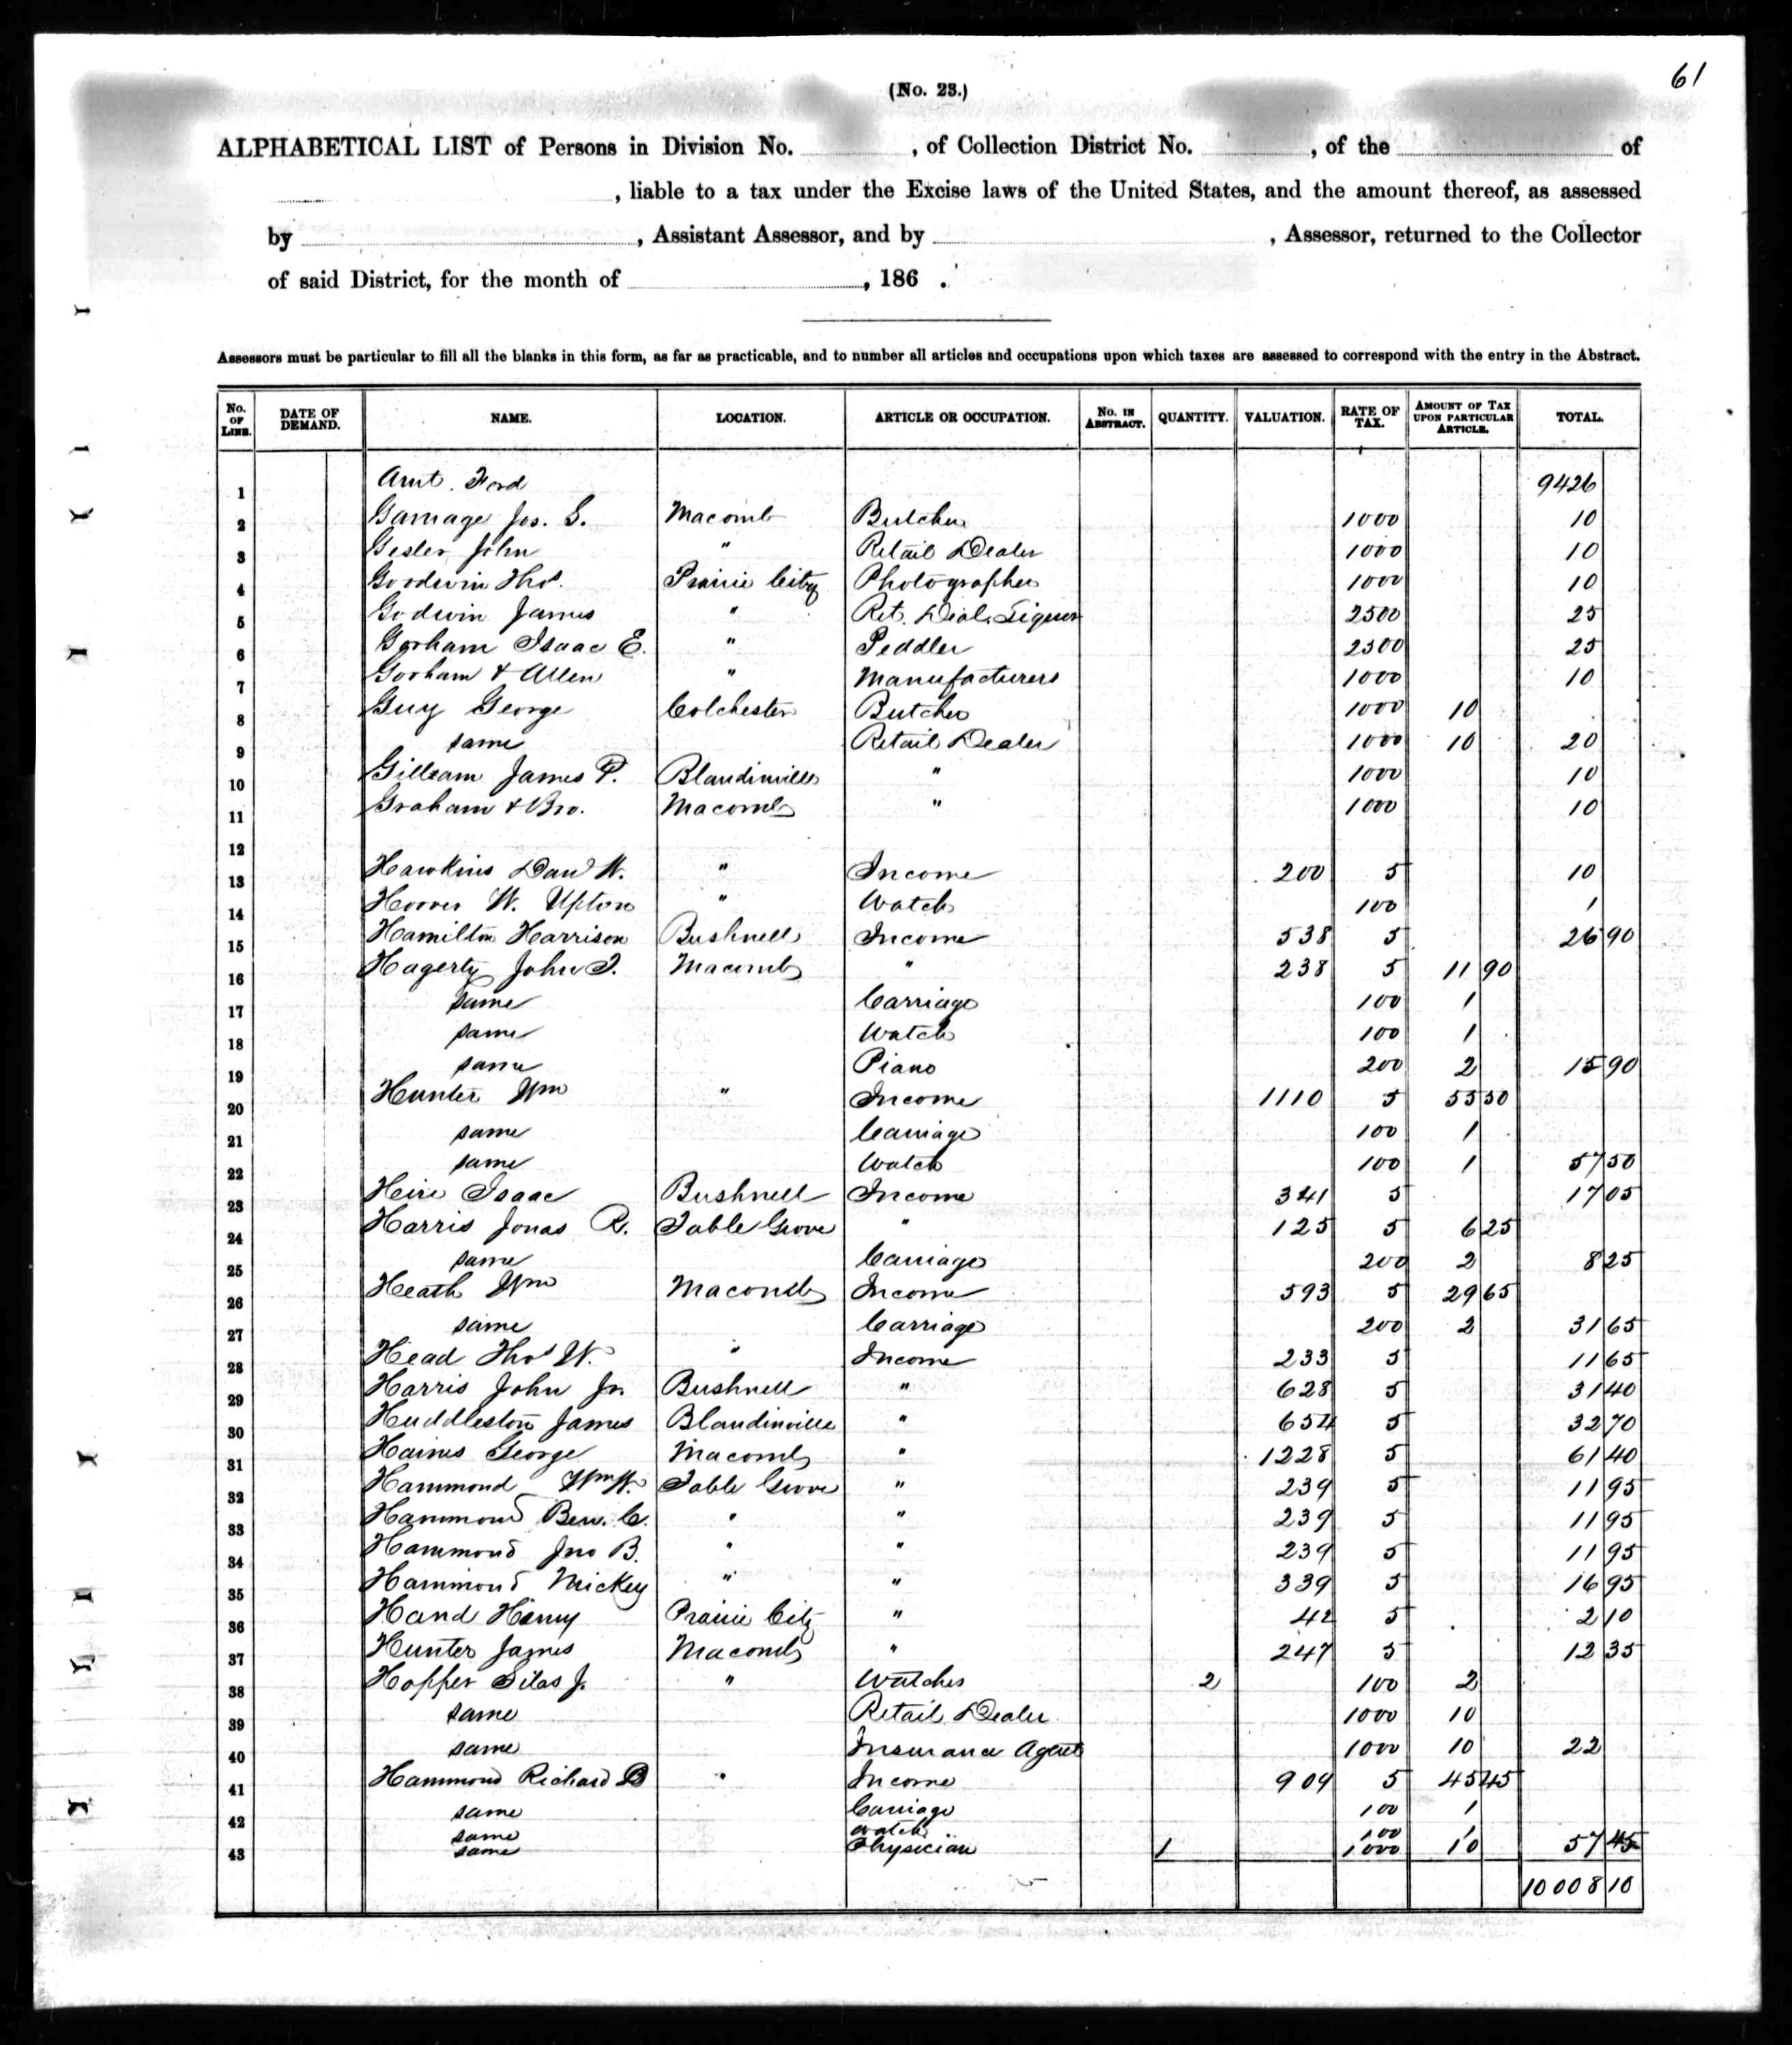 61
(No. 23.)
ALPHABETICAL LIST of Persons in Division No. , of Collection District No. , of the of
, liable to a tax under the Excise laws of the United States, and the amount thereof, as assessed
by , Assistant Assessor, and by , Assessor, returned to the Collector
of said District, for the month of , 186 .
Assessors must be particular to fill all the blanks in this form, as far as practicable, and to number all articles and occupations upon which taxes are assessed to correspond with the entry in the Abstract.
No. OF LINE. DATE OF DEMAND. NAME. LOCATION. ARTICLE OR OCCUPATION. No. IN ABSTRACT. QUANTITY. VALUATION. RATE OF TAX. AMOUNT OF TAX UPON PARTICULAR ARTICLE. TOTAL.
1 Amt. Ford 9426
2 Gamage Jos. G. Macomb Butcher 1000 10
3 Gesler John " Retail Dealer 1000 10
4 Goodwin Thos. Prairie City Photographer 1000 10
5 Godwin James " Ret. Deal. Liquor 2500 25
6 Gorham Isaac E. " Peddler 2500 25
7 Gorham & Allen " Manufacturers 1000 10
8 Guy George Colchester Butcher 1000 10
9 same Retail Dealer 1000 10 20
10 Gilleam James P. Blandinville " 1000 10
11 Graham & Bro. Macomb " 1000 10
12
13 Hawkins Dan W. " Income 200 5 10
14 Hoover W. Upton " Watch 100 1
15 Hamilton Harrison Bushnell Income 538 5 26 90
16 Hagerty John T. Macomb " 238 5 11 90
17 same Carriage 100 1
18 same Watch 100 1
19 same Piano 200 2 15 90
20 Hunter Wm " Income 1110 5 55 50
21 same Carriage 100 1
22 same Watch 100 1 57 50
23 Heire Isaac Bushnell Income 341 5 17 05
24 Harris Jonas R. Table Grove " 125 5 6 25
25 same Carriage 200 2 8 25
26 Heath Wm Macomb Income 593 5 29 65
27 same Carriage 200 2 31 65
28 Head Thos W. " Income 233 5 11 65
29 Harris John Jr. Bushnell " 628 5 31 40
30 Huddleston James Blandinville " 654 5 32 70
31 Haines George Macomb " 1228 5 61 40
32 Hammond Wm W. Table Grove " 239 5 11 95
33 Hammond Ben. C. " " 239 5 11 95
34 Hammond Jno B. " " 239 5 11 95
35 Hammond Mickey " " 339 5 16 95
36 Hand Henry Prairie City " 42 5 2 10
37 Hunter James Macomb " 247 5 12 35
38 Hopper Silas J. " Watches 2 100 2
39 same Retail Dealer 1000 10
40 same Insurance Agent 1000 10 22
41 Hammond Richard B " Income 909 5 45 45
42 same Carriage 100 1
same Watch 100 1
43 same Physician 1 1000 10 57 45
10008 10